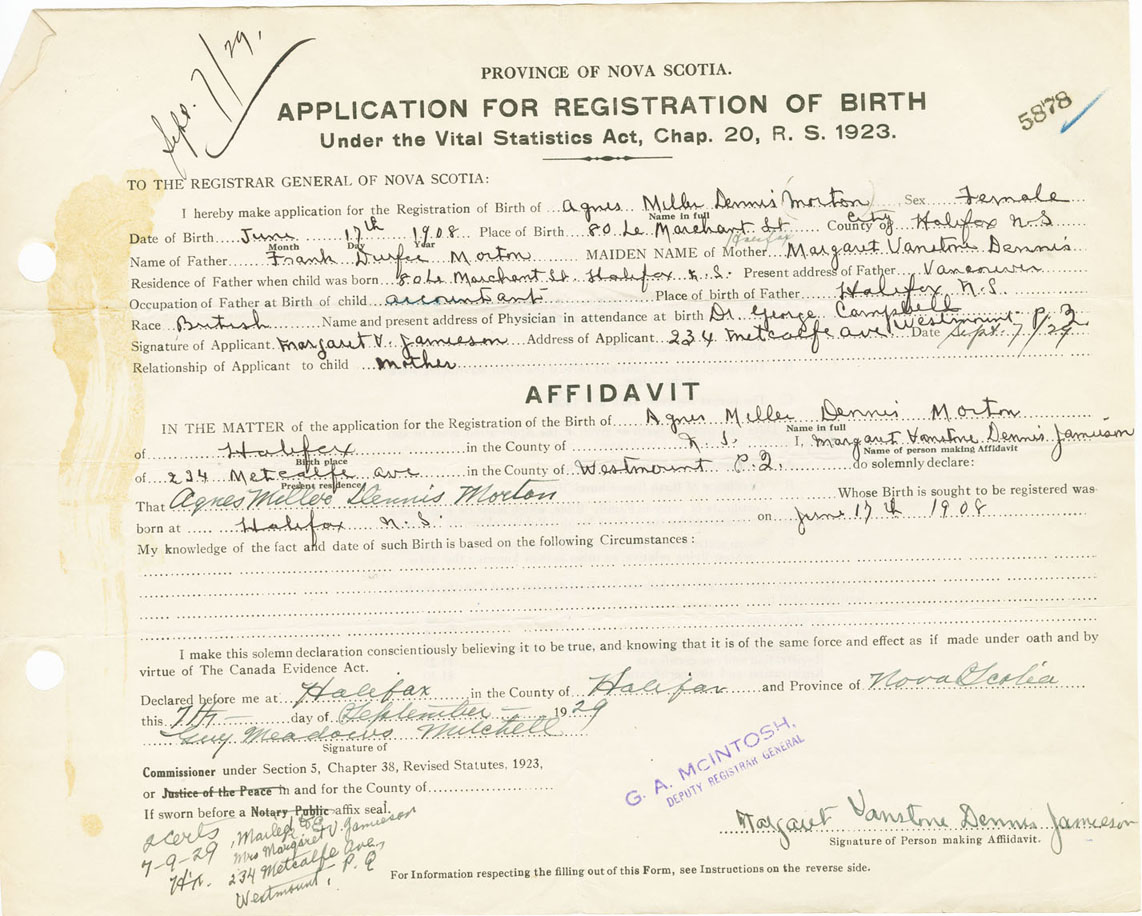 Sept. 7/29.
PROVINCE OF NOVA SCOTIA.
APPLICATION FOR REGISTRATION OF BIRTH
Under the Vital Statistics Act, Chap. 20, R. S. 1923.
5878
TO THE REGISTRAR GENERAL OF NOVA SCOTIA:
I hereby make application for the Registration of Birth of Agnes Miller Dennis Morton Sex Female
Name in full
Date of Birth June 17th 1908 Place of Birth 80 Le Marchant St County of City Halifax N S
Month Day Year Halifax
Name of Father Frank Durfee Morton MAIDEN NAME of Mother Margaret Vanstone Dennis
Residence of Father when child was born 80 Le Marchant St. Halifax N. S. Present address of Father Vancouver
Occupation of Father at Birth of child accountant Place of birth of Father Halifax N. S.
Race British Name and present address of Physician in attendance at birth Dr. George Campbell
Signature of Applicant Margaret V. Jamieson Address of Applicant 234 Metcalfe ave Westmount P. Q. Date Sept. 7/29
Relationship of Applicant to child Mother
AFFIDAVIT
IN THE MATTER of the application for the Registration of the Birth of Agnes Miller Dennis Morton
Name in full
of Halifax in the County of N. S. I, Margaret Vanstone Dennis Jamieson
Birth place Name of person making Affidavit
of 234 Metcalfe ave in the County of Westmount P. Q. do solemnly declare:
Present residence
That Agnes Miller Dennis Morton Whose Birth is sought to be registered was
born at Halifax N. S. on June 17th 1908
My knowledge of the fact and date of such Birth is based on the following Circumstances :
I make this solemn declaration conscientiously believing it to be true, and knowing that it is of the same force and effect as if made under oath and by
virtue of The Canada Evidence Act.
Declared before me at Halifax in the County of Halifax and Province of Nova Scotia
this 7th day of September 1929
Guy Meadows Mitchell
Signature of
Commissioner under Section 5, Chapter 38, Revised Statutes, 1923,
or Justice of the Peace in and for the County of
If sworn before a Notary Public affix seal.
G. A. McINTOSH,
DEPUTY REGISTRAR GENERAL
Margaret Vanstone Dennis Jamieson
Signature of Person making Affidavit.
2 certs
7-9-29
Mailed to
Mrs Margaret V. Jamieson
234 Metcalfe Ave,
Westmount, P. Q
For Information respecting the filling out of this Form, see Instructions on the reverse side.